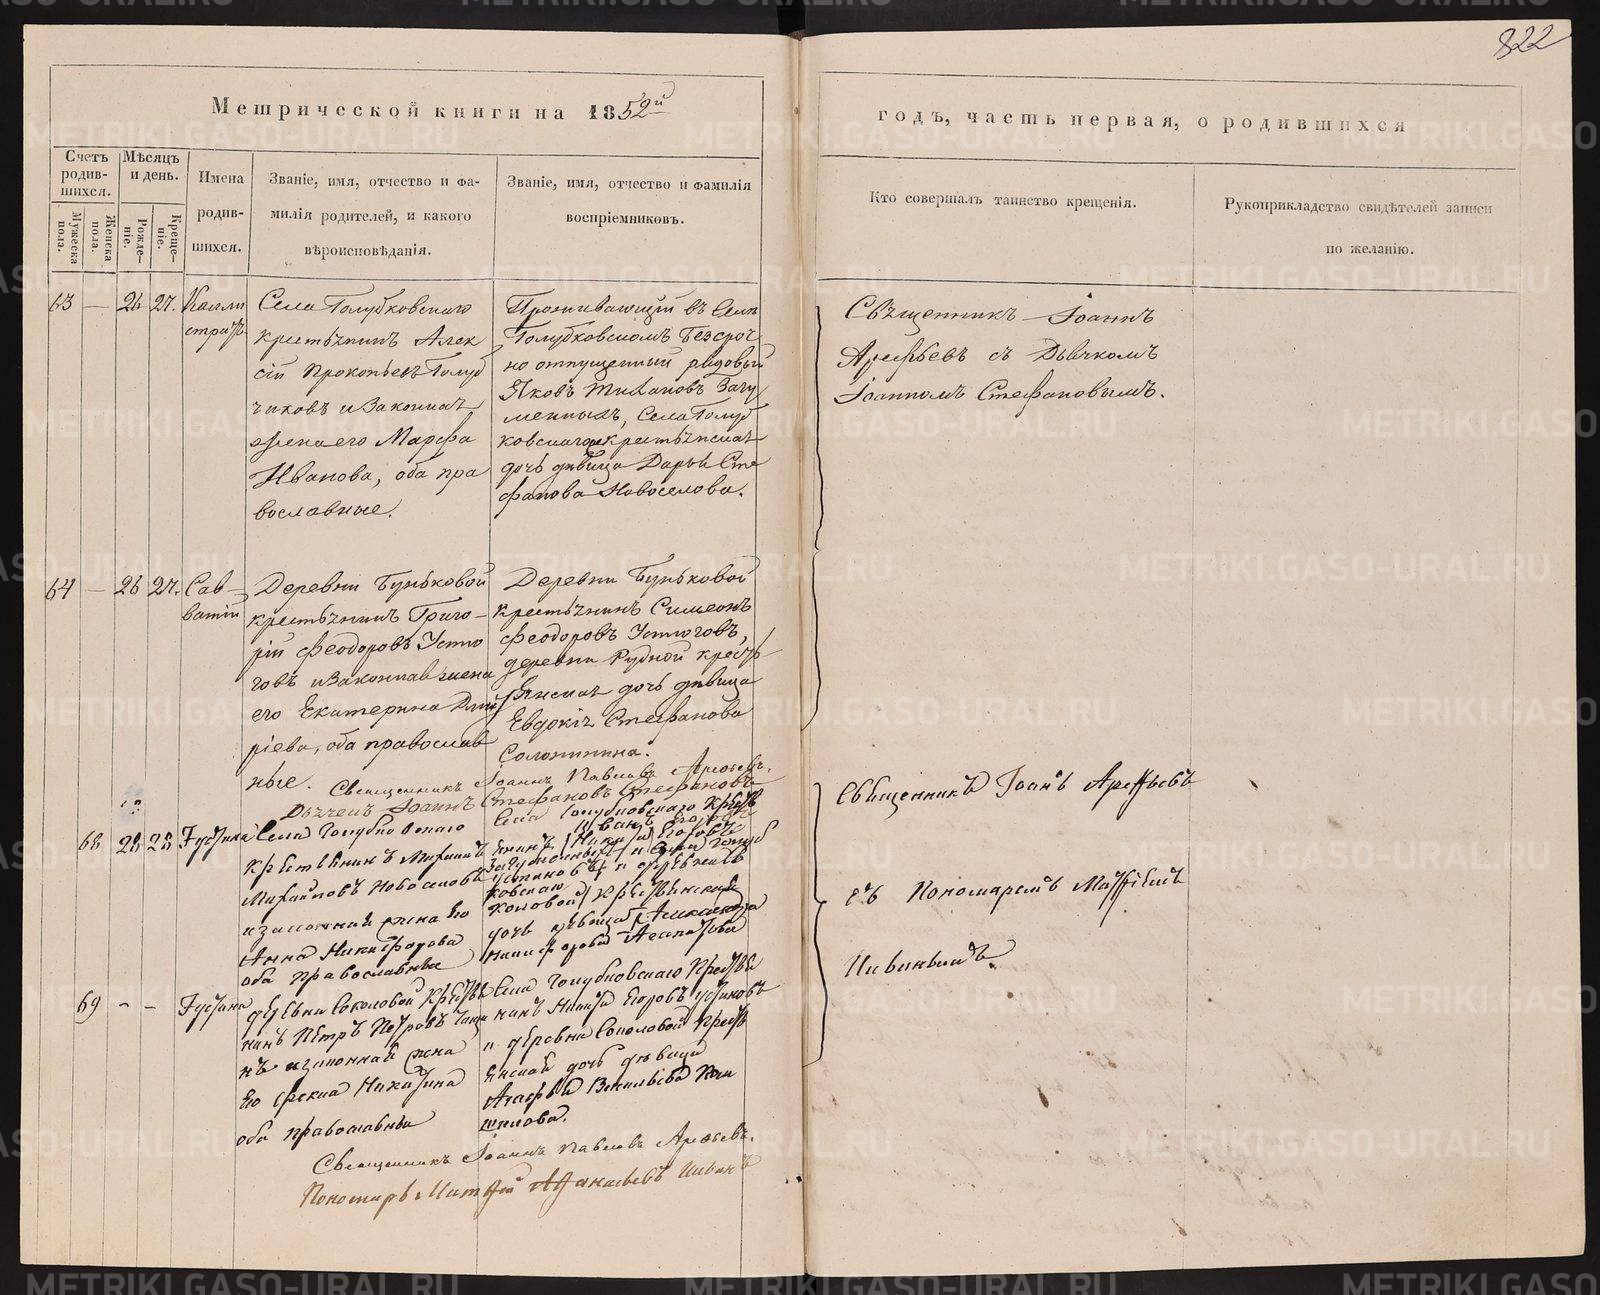 822
Метрической книги на 1852й
годъ, часть первая, о родившихся
Счетъ родив-шихся.
Мужеска пола.
Женска пола.
Мѣсяцъ и день.
Рожде-ніе.
Креще-ніе.
Имена
родив-
шихся.
Званіе, имя, отчество и фа-
милія родителей, и какого
вѣроисповѣданія.
Званіе, имя, отчество и фамилія
воспріемниковъ.
Кто совершалъ таинство крещенія.
Рукоприкладство свидѣтелей записи
по желанію.
63 — 26 27.
Калли
стратъ
Села Голубковскаго
крестьянинъ Алек
сій Прокопьевъ Голуб
чиковъ и законная
жена его Марфа
Иванова, оба пра
вославные.
Проживающій въ Селѣ
Голубковскомъ безсроч
но отпущенный рядовый
Яковъ Тихановъ Загу
менныхъ, Села Голуб
ковскаго крестьянская
дочь дѣвица Дарья Сте
фанова Новоселова.
Священникъ Іоаннъ
Арефьевъ съ Дьячкомъ
Іоанномъ Стефановымъ.
64 — 26 27.
Сав-
ватій
Деревни Буньковой
крестьянинъ Григо-
рій Феодоровъ Устю
говъ и законная жена
его Екатерина Дмит
ріева, оба православ
ные.
Деревни Буньковой
крестьянинъ Симеонъ
Феодоровъ Устюговъ,
деревни Рудной крест
янская дочь дѣвица
Евдокія Стефанова
Солонинина.
Священникъ Іоаннъ Павловъ Арефьевъ.
Дьячекъ Іоаннъ Стефановъ Стефановъ
68 28 28
Іустина
Села Голубковскаго
крестьянинъ
Михайловъ Новоселовъ
и законная жена его
Анна Никифорова
оба православные
Села Голубковскаго крест
янинъ
дочь дѣвица Александра
Никифорова
Священникъ Іоаннъ Арефьевъ
съ Пономаремъ Матфіемъ
Ивинымъ.
69 - -
Іустина
деревни Соколовой крестья
нинъ Петръ Петровъ
и законная жена
его Фекла Никитина
оба православные
Села Голубковскаго крестья
нинъ Никита Егоровъ Устиновъ
и деревни Соколовой крест
янская дочь дѣвица
Агафья Васильева
Священникъ Іоаннъ Павловъ Арефьевъ.
Пономарь Матфій Афанасьевъ Ивинъ